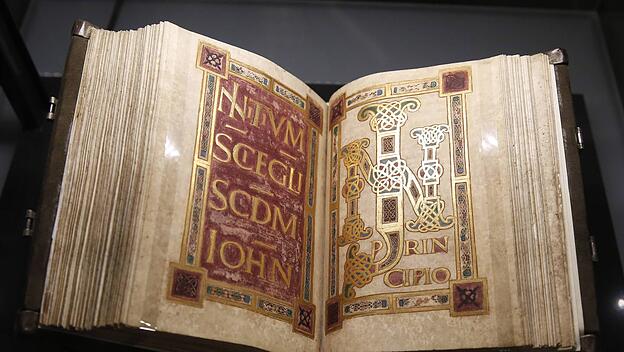 INITVM
SCEGLI
SCDM
IOHN
IN
PRIN
CIPIO